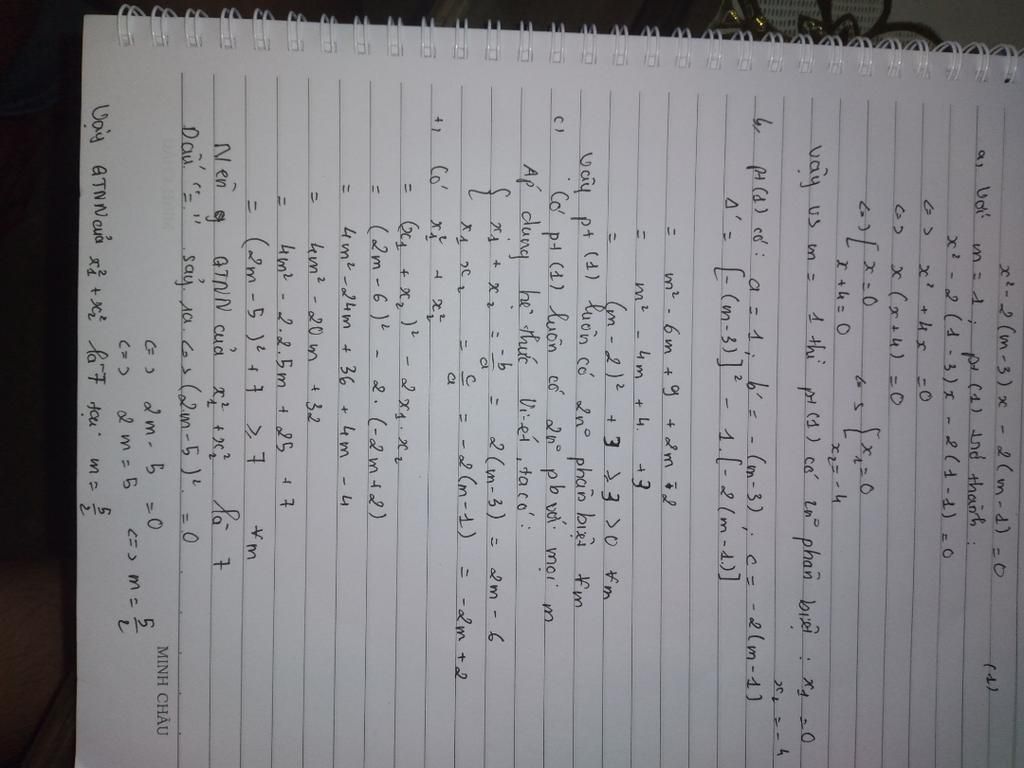 x² - 2(m-3)x - 2(m-1) = 0 (1)
a, Với m = 1, pt (1) trở thành:
x² - 2(1-3)x - 2(1-1) = 0
<=> x² + 4x = 0
<=> x(x+4) = 0
<=> [ x = 0 <=> [ x₁ = 0
x + 4 = 0 x₂ = -4
Vậy vs m = 1 thì pt (1) có 2n⁰ phân biệt : x₁ = 0
x₂ = -4
b, pt (1) có : a = 1 ; b' = -(m-3) ; c = -2(m-1)
Δ' = [-(m-3)]² - 1.[-2(m-1)]
= m² - 6m + 9 + 2m - 2
= m² - 4m + 4 + 3
= (m-2)² + 3 ≥ 3 > 0 ∀m
Vậy pt (1) luôn có 2n⁰ phân biệt ∀m
c, Có pt (1) luôn có 2n⁰ pb với mọi m
Áp dụng hệ thức Vi-ét, ta có :
{ x₁ + x₂ = -b/a = 2(m-3) = 2m - 6
x₁ x₂ = c/a = -2(m-1) = -2m + 2
+, Có x₁² + x₂²
= (x₁ + x₂)² - 2x₁.x₂
= (2m-6)² - 2.(-2m+2)
= 4m² - 24m + 36 + 4m - 4
= 4m² - 20m + 32
= 4m² - 2.2.5m + 25 + 7
= (2m-5)² + 7 ≥ 7 ∀m
Nên GTNN của x₁² + x₂² là 7
Dấu "=" xảy ra <=> (2m-5)² = 0
<=> 2m - 5 = 0
<=> 2m = 5 <=> m = 5/2
Vậy GTNN của x₁² + x₂² là 7 tại m = 5/2
MINH CHÂU